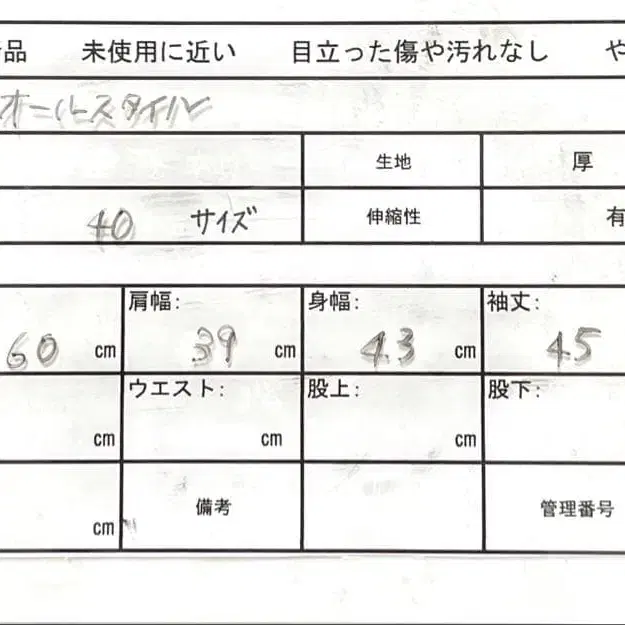 品 未使用に近い 目立った傷や汚れなし や
オールスタイル
生地 厚
40 サイズ 伸縮性 有
肩幅: 身幅: 袖丈:
60 cm 39 cm 43 cm 45
ウエスト: 股上: 股下:
cm cm cm
cm 備考 管理番号